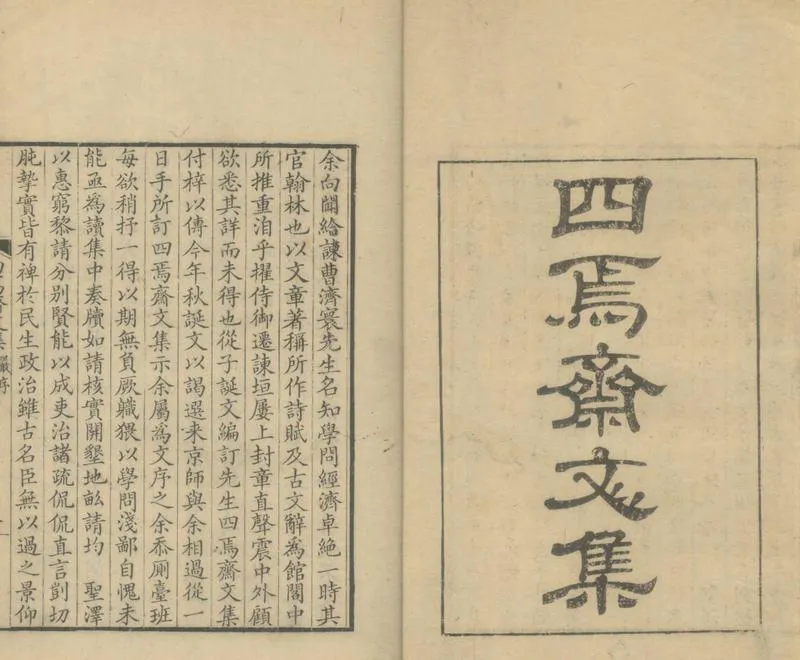 四焉齋文集
余向聞給諫曹濟寰先生名知學問經濟卓絕一時其
官翰林也以文章著稱所作詩賦及古文辭為館閣中
所推重洎乎擢侍御遷諫垣屢上封章直聲震中外顧
欲悉其詳而未得也從子誕文編訂先生四焉齋文集
付梓以傳今年秋誕文以謁選来京師與余相過從一
日手所訂四焉齋文集示余屬為文序之余忝厠臺班
每欲稍抒一得以期無負厥職猥以學問淺鄙自愧未
能亟為讀集中奏牘如請核實開墾地畝請均　聖澤
以惠窮黎請分别賢能以成吏治諸疏侃侃直言剴切
肫摯實皆有裨於民生政治雖古名臣無以過之景仰